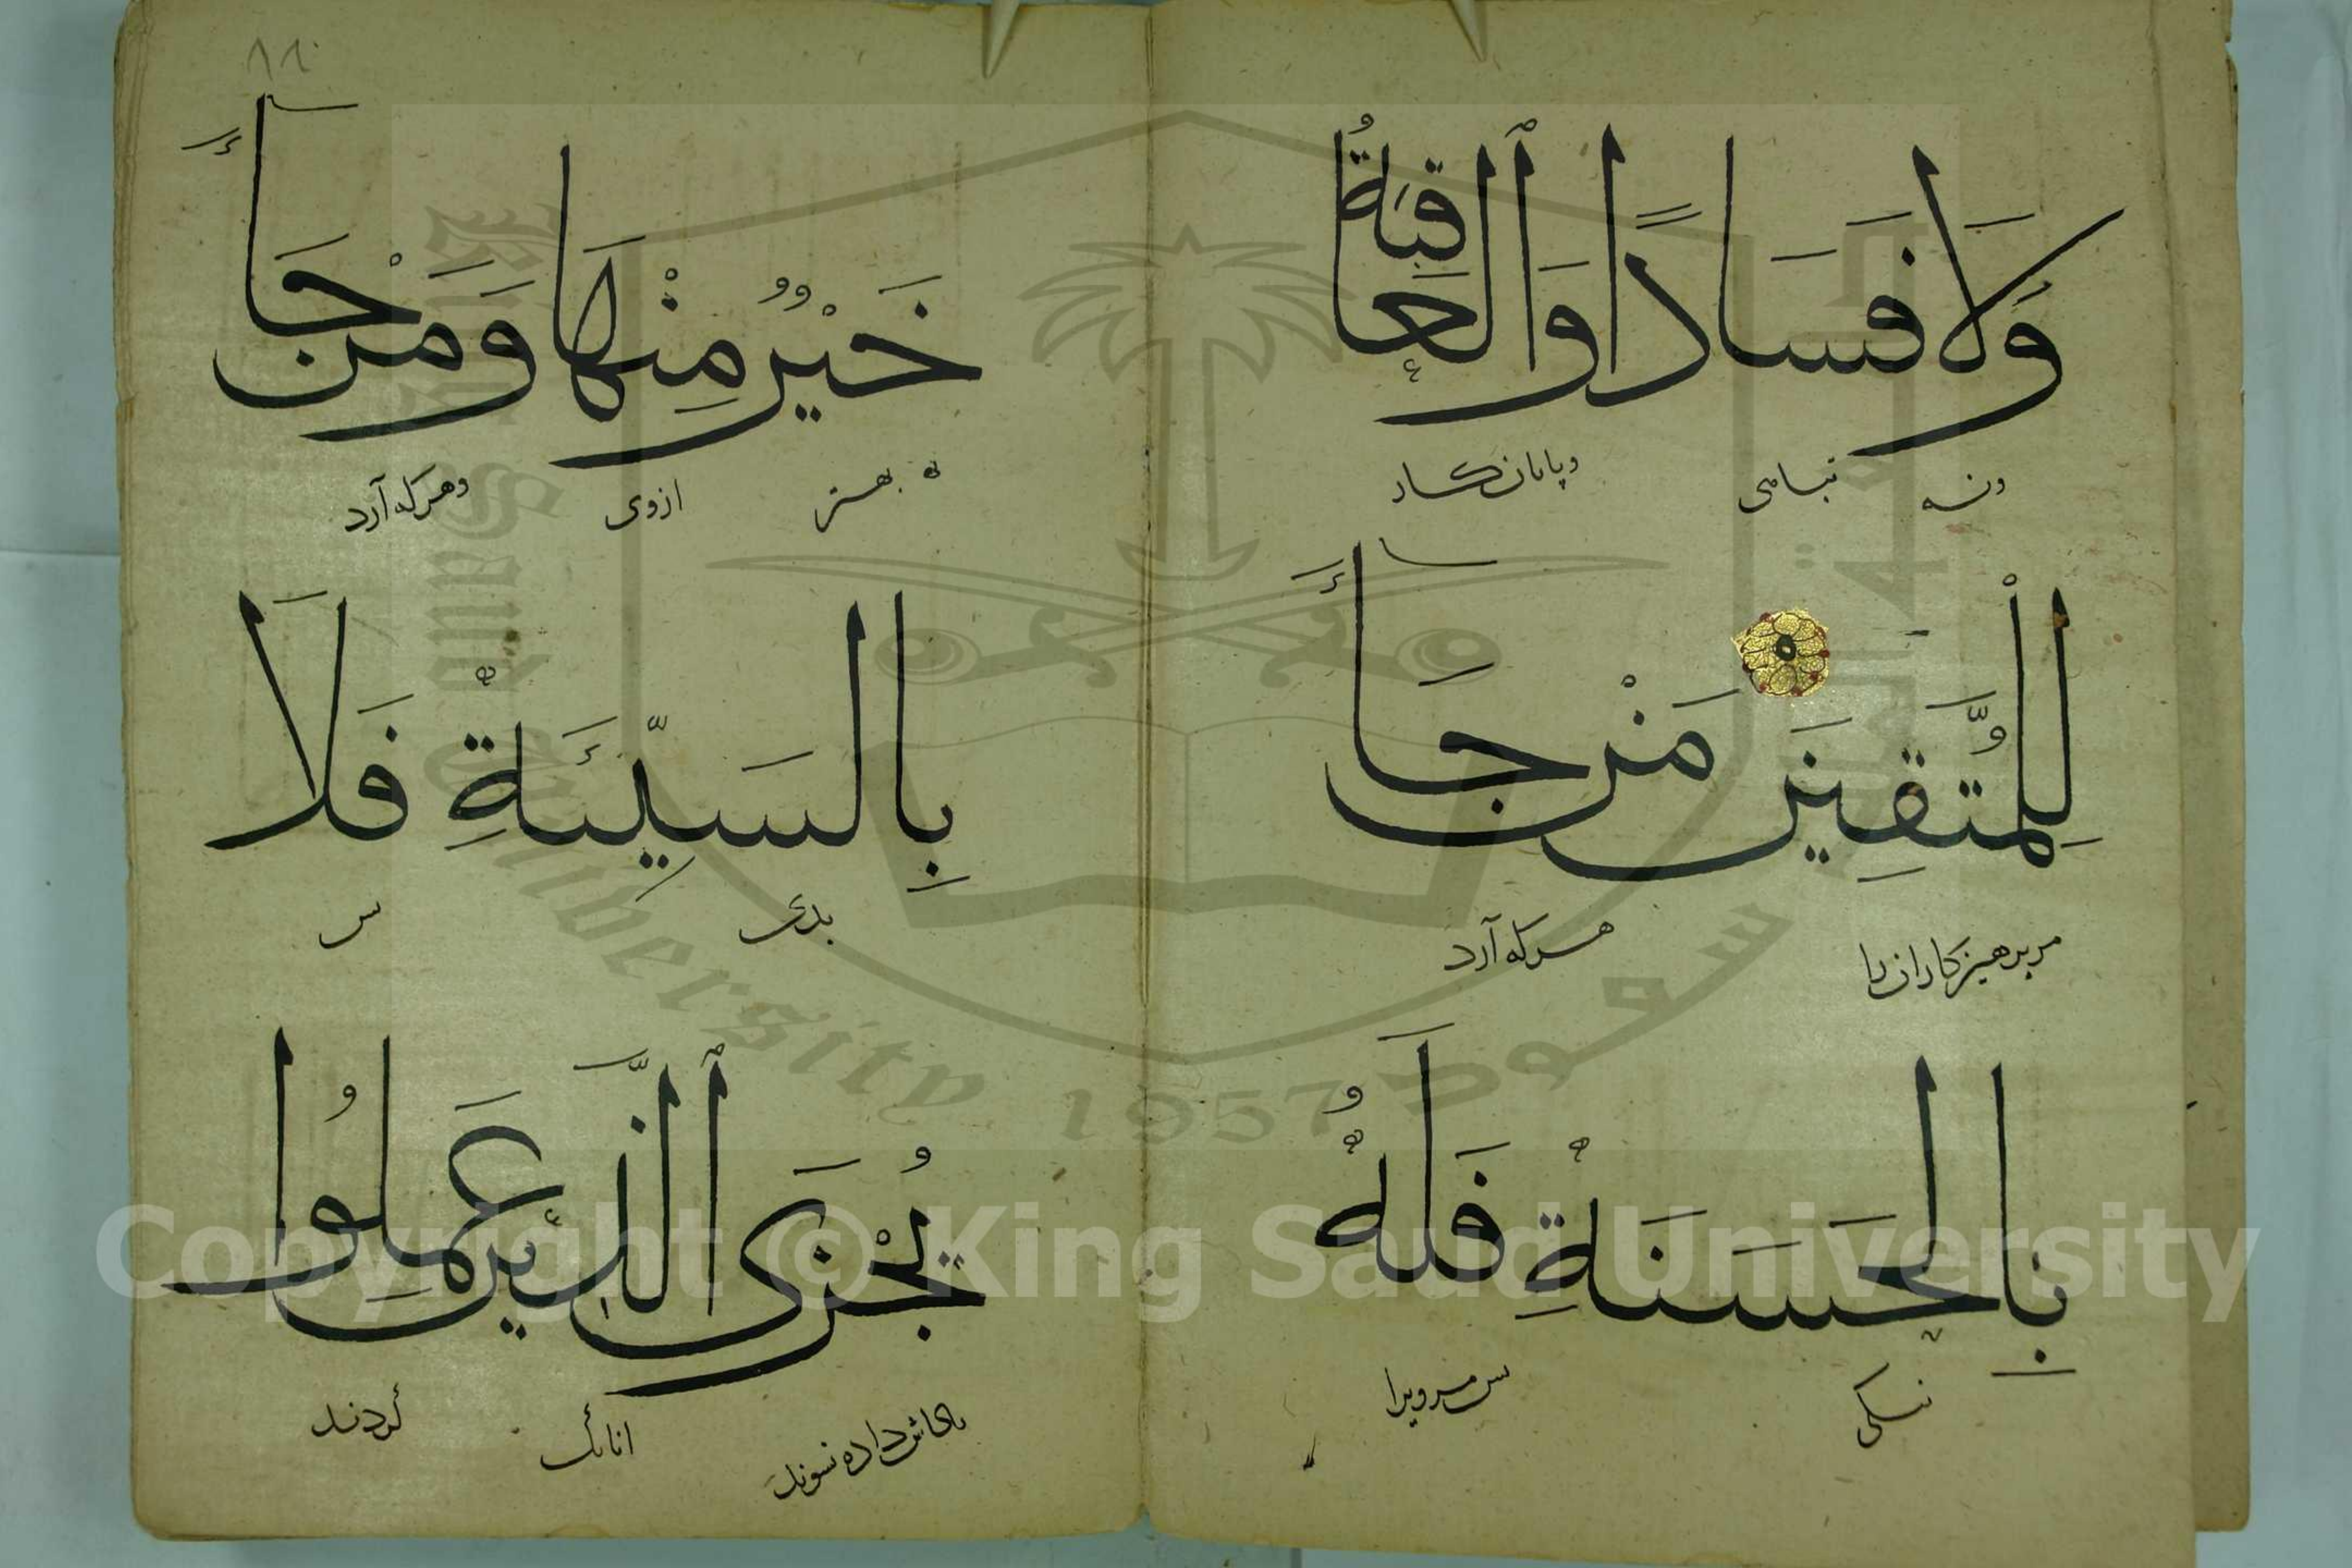 وَلَا فَسَادًا وَالْعَاقِبَةُ
ونه تباهی وپایان کار
لِلْمُتَّقِينَ مَنْ جَاءَ
مر پرهیزکاران را هرکه آرد
بِالْحَسَنَةِ فَلَهُ
نیکی پس مرویرا
٨٨
خَيْرٌ مِنْهَا وَمَنْ جَاءَ
به بهتر ازوی وهرکه آرد
بِالسَّيِّئَةِ فَلَا
بدی پس
يُجْزَى الَّذِينَ عَمِلُوا
پاداش داده نشوند آنانک کردند
King Saud University 1957
Copyright © King Saud University